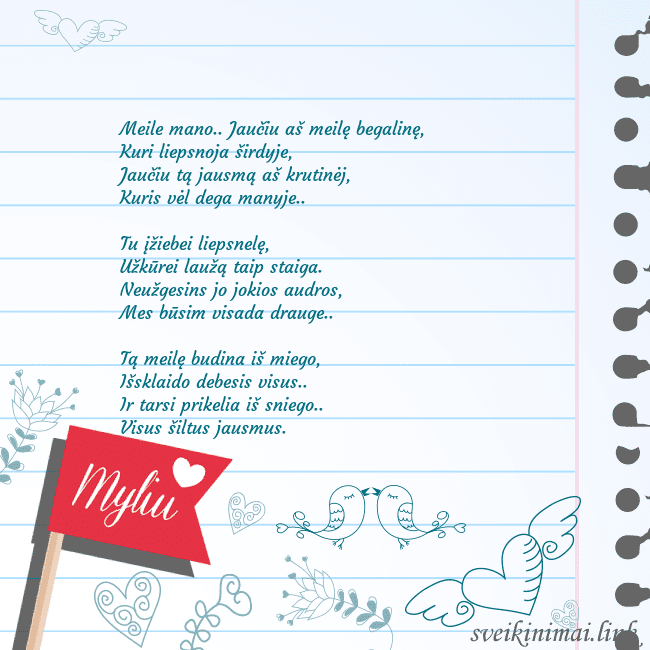 Meile mano.. Jaučiu aš meilę begalinę,
Kuri liepsnoja širdyje,
Jaučiu tą jausmą aš krutinėj,
Kuris vėl dega manyje..
Tu įžiebei liepsnelę,
Užkūrei laužą taip staiga.
Neužgesins jo jokios audros,
Mes būsim visada drauge..
Tą meilę budina iš miego,
Išsklaido debesis visus..
Ir tarsi prikelia iš sniego..
Visus šiltus jausmus.
Myliu
sveikinimai.link